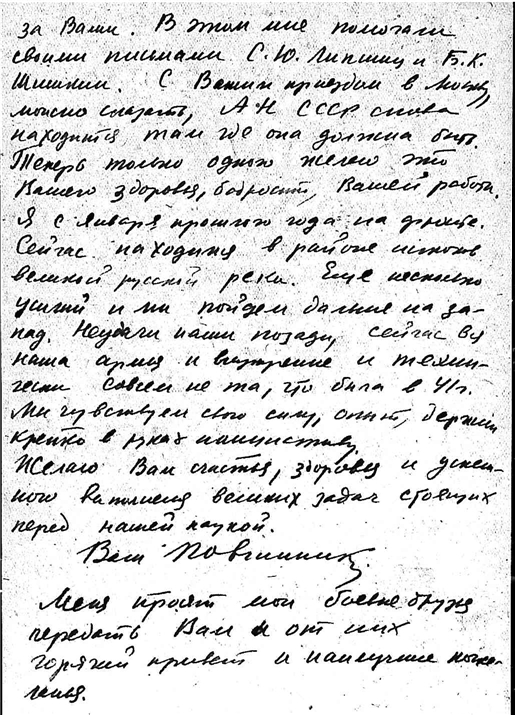 за Вами. В этом мне помогали
своими письмами С.Ю. Липшиц и Б.К.
Шишкин. С Вашим приездом в Москву,
можно сказать, АН СССР снова
находится там где она должна быть.
Теперь только одного желаю это
Вашего здоровья, бодрости, Вашей работы.
Я с января прошлого года на фронте.
Сейчас находимся в районе истоков
великой русской реки. Еще несколько
усилий и мы пойдем дальше на за-
пад. Неудачи наши позади, сейчас вся
наша армия и внутренне и техни-
чески совсем не та, что была в 41г.
Мы чувствуем свою силу, опыт, держим
крепко в руках инициативу.
Желаю Вам счастья, здоровья и успеш-
ного выполнения великих задач стоящих
перед нашей наукой.
Ваш
Меня просят мои боевые друзья
передать Вам и от них
горячий привет и наилучшие поже-
лания.